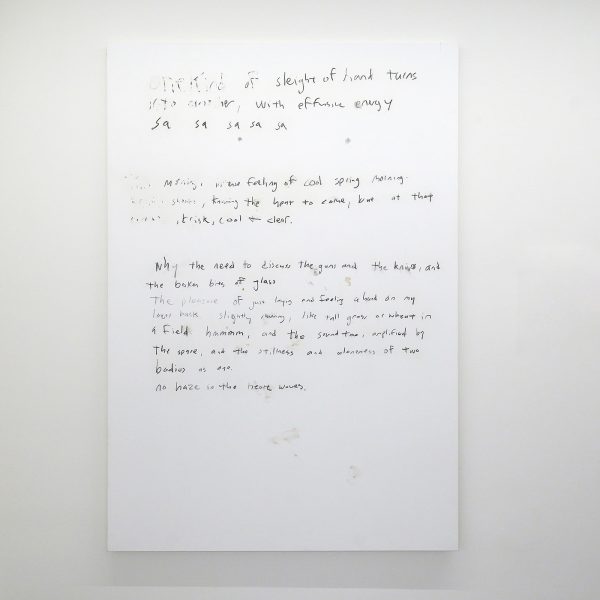 one kind of sleight of hand turns
into another, with effusive energy
Sa sa sa sa sa
morning, in the feeling of cool spring morning
shower, knowing the heat to come, but at that
, brisk, cool + clear.
Why the need to discuss the guns and the knives, and
the broken bits of glass
The pleasure of just laying and feeling a hand on my
lower back slightly moving, like tall grass or wheat in
a field hmmmm, and the sound too, amplified by
the spore, and the stillness and aloneness of two
bodies as one.
no haze in the heat waves.